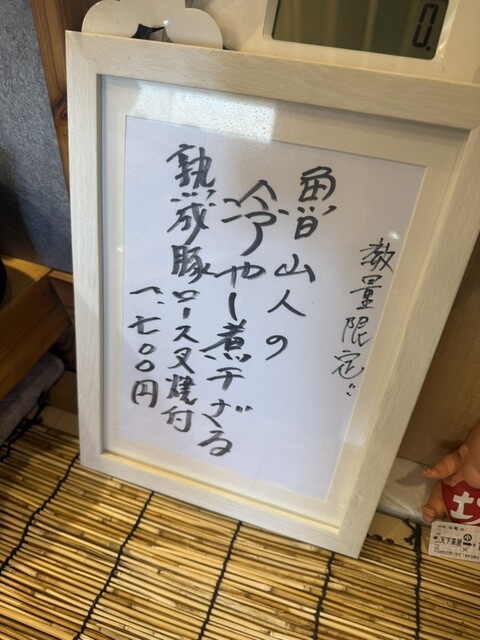 数量限定!!
魯山人の
冷やし煮干ざる
熟成豚ロース叉焼付
一、七〇〇円
0.
天下茶屋